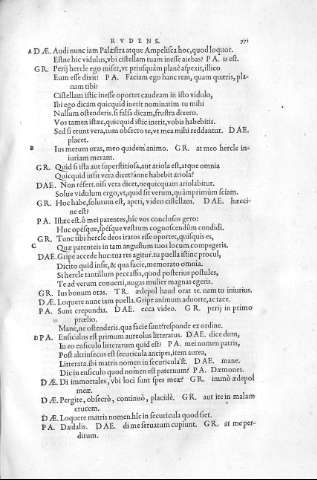 RVDENS. 771
A DÆ. Audi nunc iam Palæstra atque Ampelisca hoc, quod loquar.
Estne hic vidulus, vbi cistellam tuam inesse aiebas? PA. is est.
GR. Perij hercle ego miser, vt priusquam planè aspexit, illico
Eum esse dixit! PA. Faciam ego hanc rem, quam quæris, pla-
nam tibi:
Cistellam istic inesse oportet caudeam in isto vidulo,
Ibi ego dicam quicquid inerit nominatim tu mihi
Nullum ostenderis, si falsa dicam, frustra dixero.
Vos tamen istæc, quicquid istic inerit, vobis habebitis.
Sed si erunt vera, tum obsecro te, vt mea mihi reddantur. DAE.
placet.
B Ius merum oras, meo quidem animo. GR. at meo hercle in-
iuriam meram.
GR. Quid si ista aut superstitiosa, aut ariola est, atque omnia
Quicquid insit vera dicet? anne habebit ariola?
DAE. Non feret, nisi vera dicet, nequicquam ariolabitur.
Solue vidulum ergo, vt, quid sit verum, quamprimum sciam.
GR. Hoc habe, solutum est, aperi, video cistellam. DAE. hæcci-
ne est?
PA. Istæc est. ô mei parentes, hîc vos conclusos gero:
Huc opésque, spésque vestrum cognoscendûm condidi.
GR. Tunc tibi hercle deos iratos esse oportet, quisquis es,
C Quæ parenteis in tam angustum tuos locum compegeris.
DAE. Gripe accede huc: tua res agitur. tu puella istinc procul,
Dicito quid insit, & qua facie, memorato omnia.
Si hercle tantillum peccassis, quod posterius postules,
Te ad verum conuerti, nugas mulier magnas egeris.
GR. Ius bonum oras. TR. ædepol haud orat te. nam tu iniurius.
DÆ. Loquere nunc iam puella. Gripe animum aduorte, ac tace.
PA. Sunt crepundia. DAE. ecca video. GR. perij in primo
prælio.
Mane, ne ostenderis. qua facie sunt? responde ex ordine.
D PA. Ensiculus est primum aureolus litteratus. DAE. dice dum,
In eo ensiculo litterarum quid est? PA. mei nomen patris,
Post altrinsecus est securicula anceps, item aurea,
Litterata: ibi matris nomen in securicula est. DAE. mane.
Dic in ensiculo quod nomen est paternum? PA. Dæmones.
DÆ. Di immortales, vbi loci sunt spes meæ? GR. immò ædepol
meæ.
DÆ. Pergite, obsecrò, continuò, placidè. GR. aut ite in malam
crucem.
DÆ. Loquere matris nomen hîc in securicula quod siet.
PA. Dædalis. DAE. di me seruatum cupiunt. GR. at me per-
ditum.